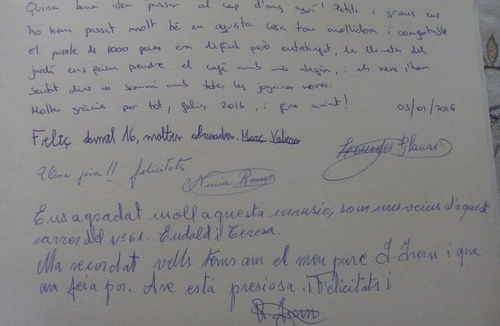 Quina bona idea passar el cap d'any aquí! Petits i grans ens
ho hem passat molt bé en aquesta casa tan acollidora i confortable
el puzzle de 1000 peces era difícil però entretingut, les del
jardí ens feien prendre el cafè amb més alegria, i els nens s'han
sentit dins un somni amb totes les joguines noves.
Moltes gràcies per tot, feliç 2016, i fins aviat!
03/01/2016
Feliç dosmil 16, moltes abraçades. Marc Valero
Una joia!! felicitats
Núria
Ens agradat moll aquesta mansio, som uns veïns d'aquest
carrer del nº 61. Eudald i Teresa.
Ma recordat vells tems am el meu pare J. Isern i que
am feia por. Are está presiosa. ¡Felicitats¡
Isern